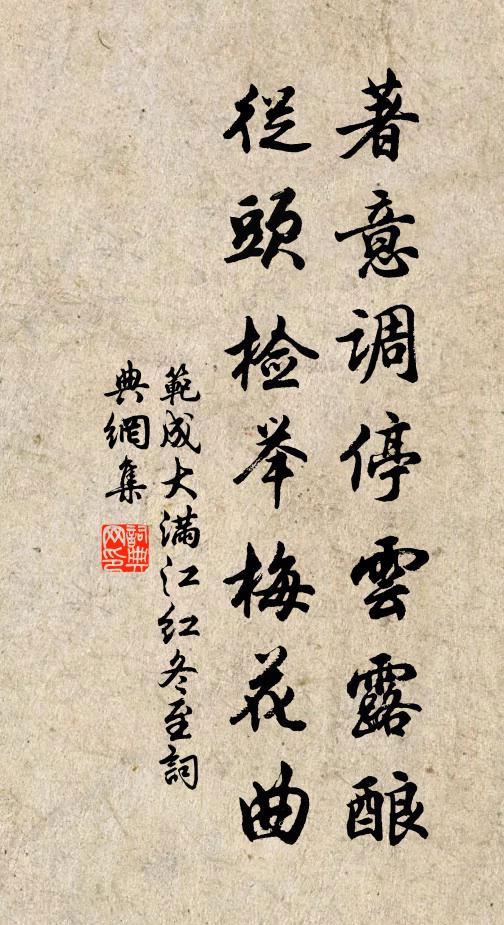 著意調停雲露酿
從頭检举梅花曲
範成大滿江红冬至詞
典網集
詞典网印